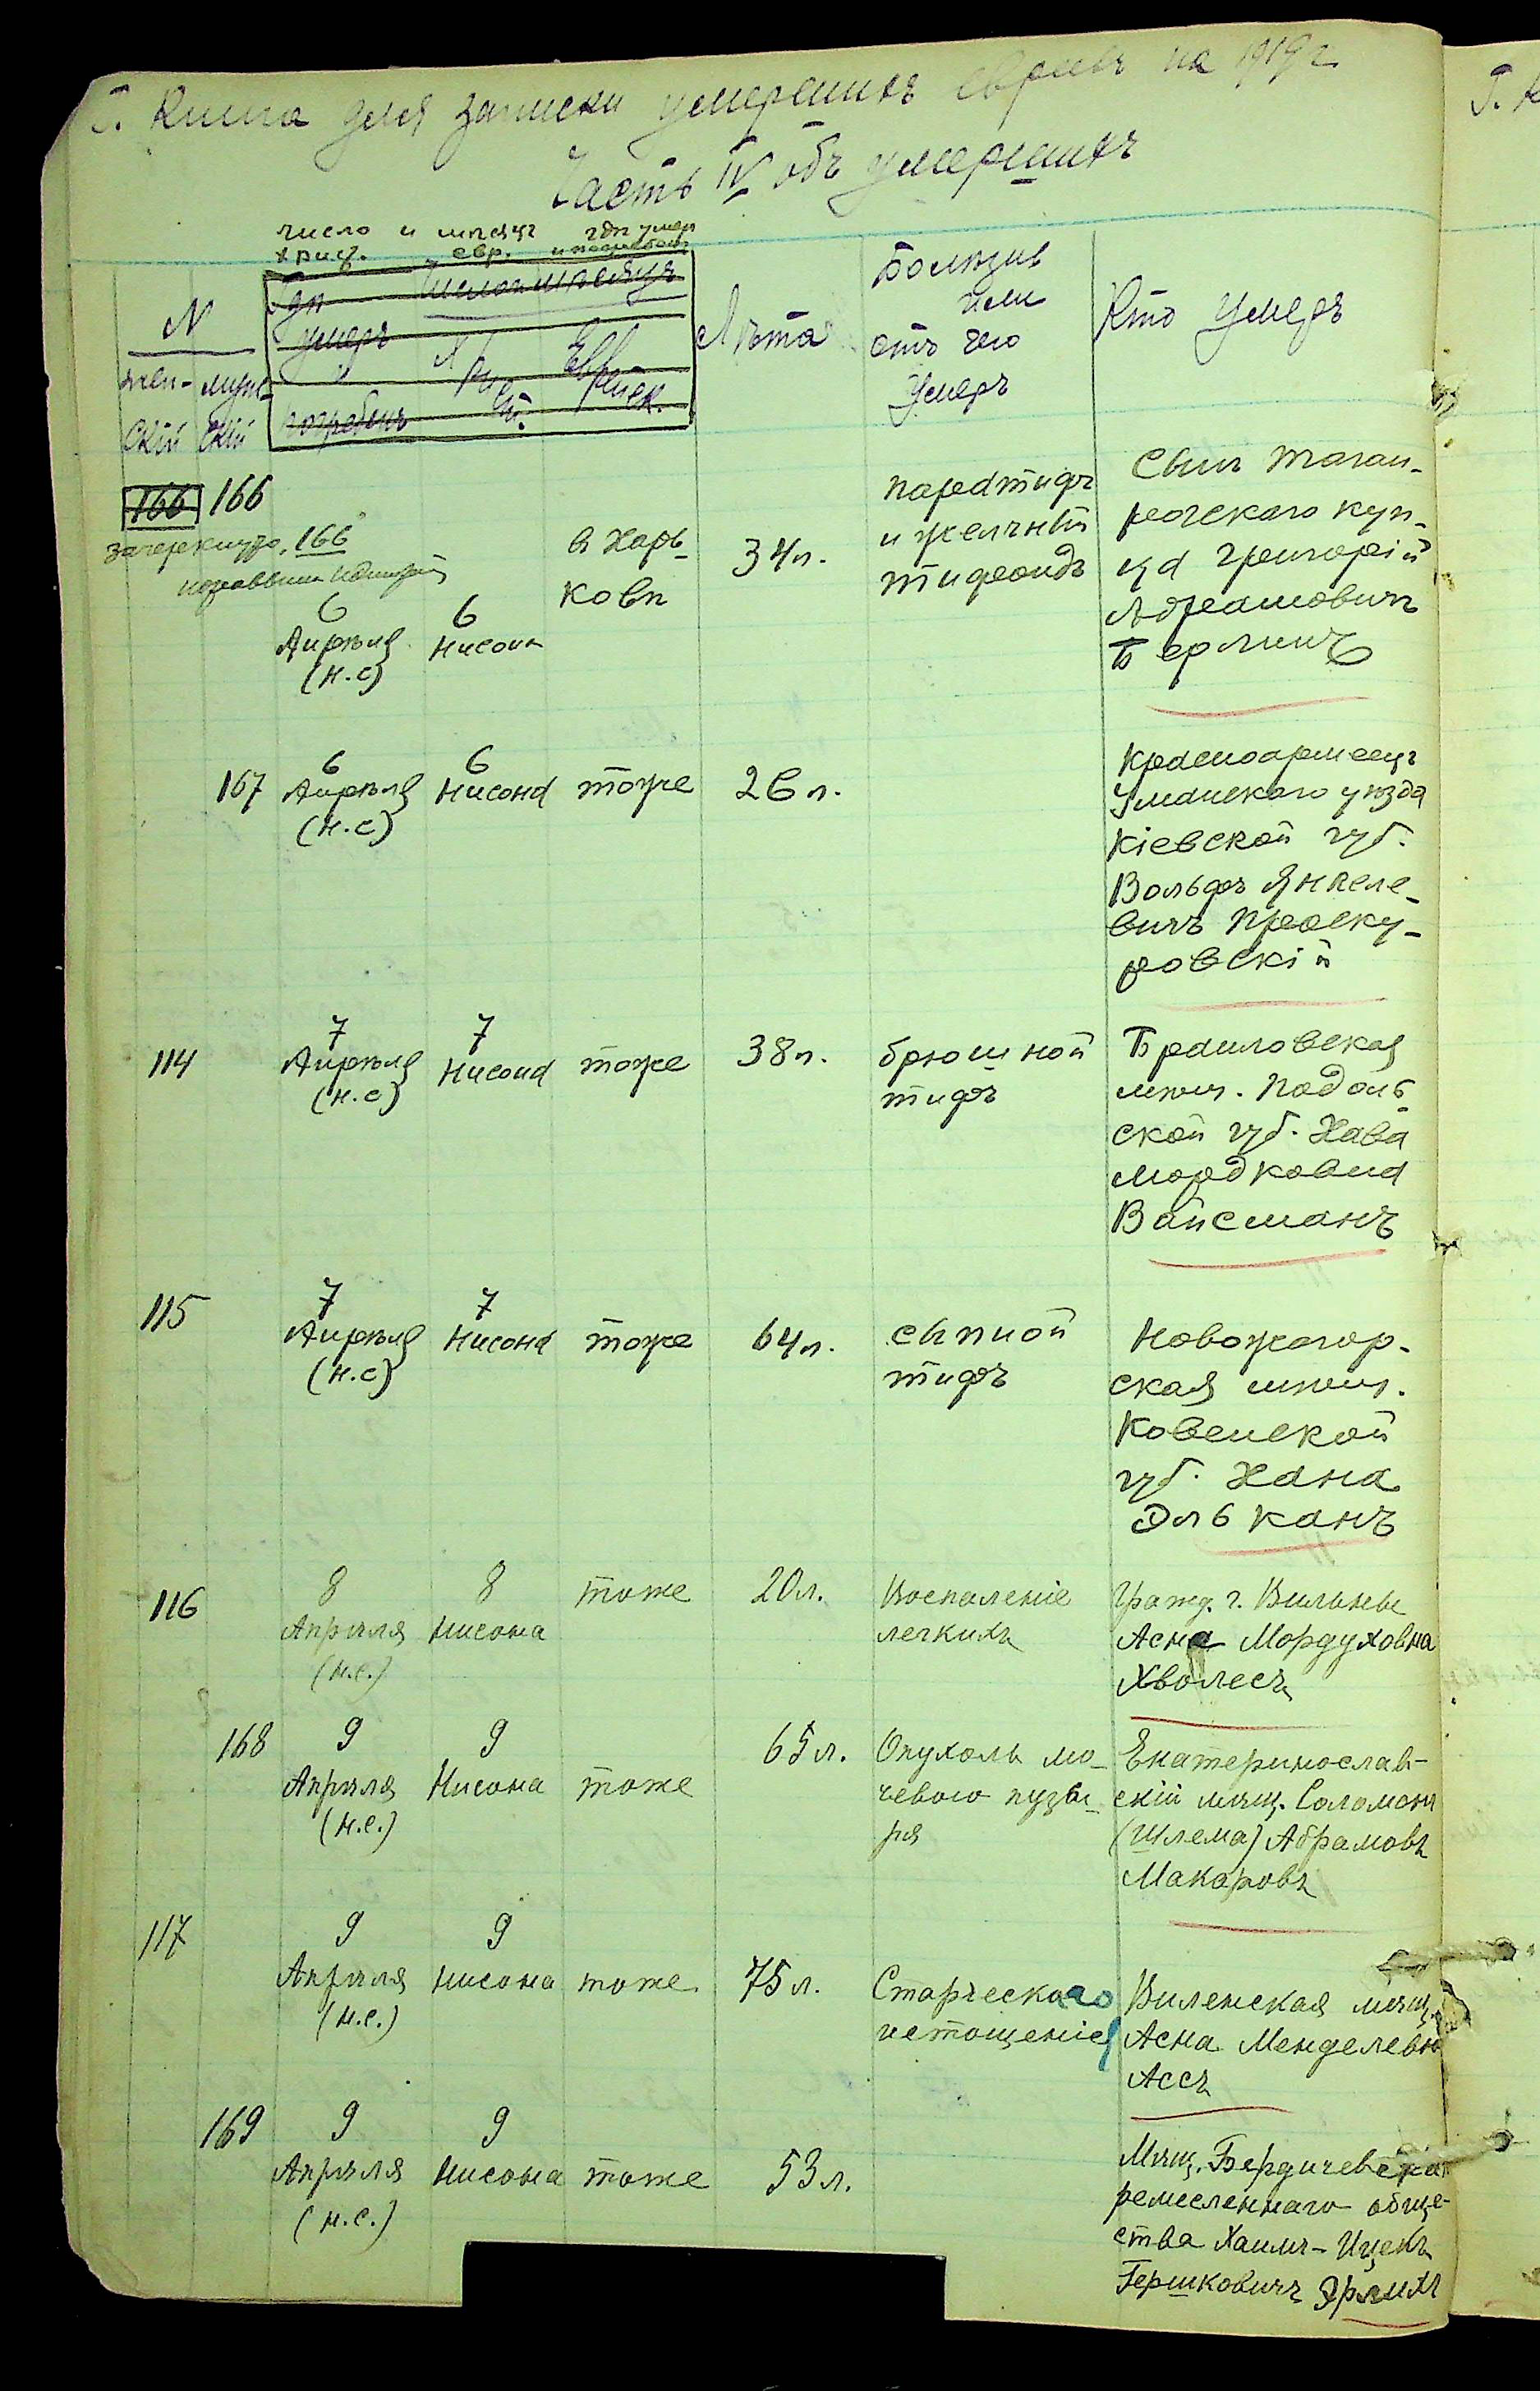 Г. Книга для записки умершихъ евреевъ на 1919 г.
Часть IV объ умершихъ
число и мѣсяцъ гдѣ умеръ
христ. евр. и погребенъ
№
женскій
мужескій
Гдѣ умеръ и погребенъ
Число и мѣсяцъ
Христ.
Еврейск.
Лѣта
Болѣзнь
или
отъ чего
умеръ
Кто умеръ
166 166
зачеркнуто „166"
6
Апрѣля
(н.с)
6
Нисона
въ Харь-
ковѣ
34 л.
паратифъ
и желчный
тифоидъ
Сынъ таган-
рогскаго куп-
ца Григорій
Абрамовичъ
Берлинъ
167
6
Апрѣля
(н.с)
6
Нисона
тоже
26 л.
Красноармеецъ
Уманскаго уѣзда
Кіевской губ.
Вольфъ Янкеле-
вичъ Проску-
ровскій
114
7
Апрѣля
(н.с)
7
Нисона
тоже
38 л.
брюшной
тифъ
Браиловская
мѣщ. Подоль-
ской губ. Хава
Мордковна
Вайсманъ
115
7
Апрѣля
(н.с)
7
Нисона
тоже
64 л.
сыпной
тифъ
Новожагор-
ская мѣщ.
Ковенской
губ. Хана
Элькانъ
116
8
Апрѣля
(н.с.)
8
Нисона
тоже
20 л.
Воспаленіе
легкихъ
Гражд. г. Вильны
Асна Мордуховна
Хволесъ
168
9
Апрѣля
(н.с.)
9
Нисона
тоже
65 л.
Опухоль мо-
чевого пузы-
ря
Екатеринослав-
скій мѣщ. Соломонъ
(Шлема) Абрамовъ
Макаровъ
117
9
Апрѣля
(н.с.)
9
Нисона
тоже
75 л.
Старческаго
истощенія
Виленская мѣщ.
Асна Менделевн
Ассъ
169
9
Апрѣля
(н.с.)
9
Нисона
тоже
53 л.
Мѣщ. Бердичевска
ремесленнаго обще-
ства Хаимъ-Ицекъ
Гершковичъ Эрлихъ